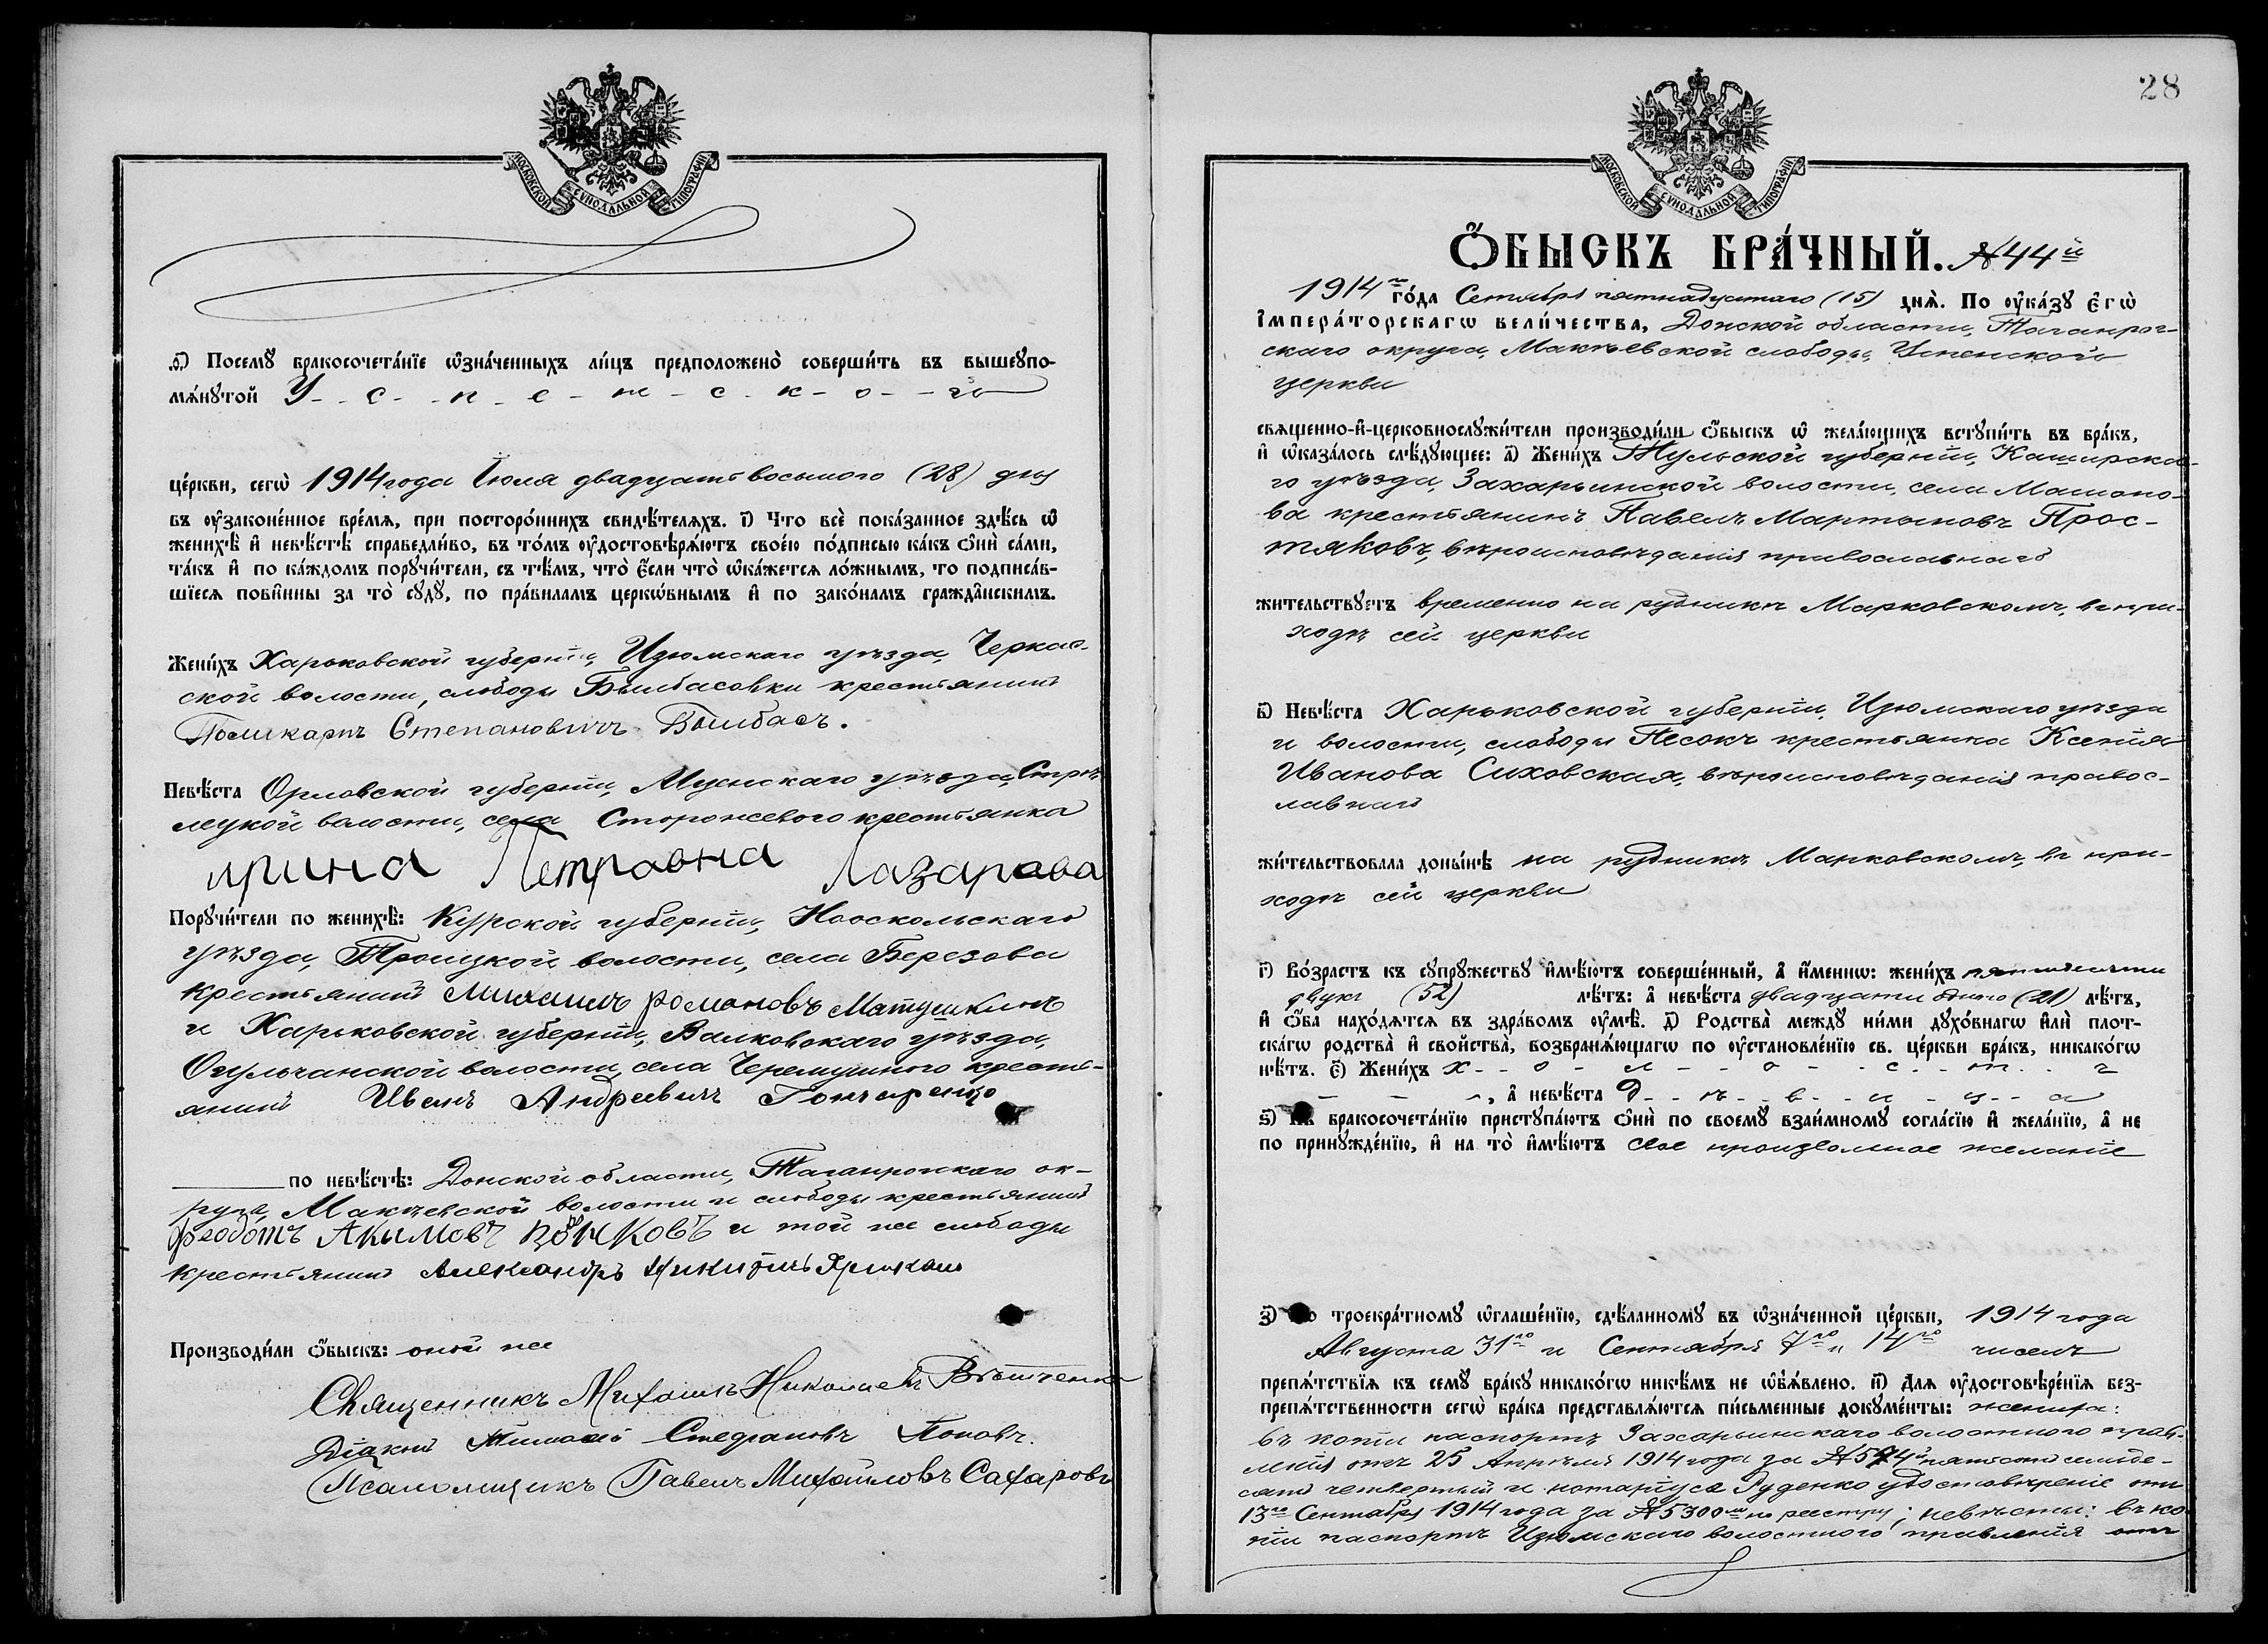 МОСКОВСКОЙ СѴНОДАЛЬНОЙ ТИПОГРАФІИ
ѳ҃) Посемꙋ̀ бракосочета́нїе ѡ҆зна́ченныхъ ли́цъ предположено̀ соверши́ть въ вышеꙋпо-
мѧ́нꙋтой У - с - п - е - н - с - к - о - й
це́ркви, сегѡ̀ 1914 года Іюля двадцать восьмого (28) дня
въ ᲂу҆зако́ненное вре́мѧ, при посторо́ннихъ свидѣ́телѧхъ. і҃) Что̀ всѐ пока́занное здѣ́сь ѡ҆
женихѣ̀ и҆ невѣ́стѣ справедли́во, въ то́мъ ᲂу҆достовѣрѧ́ютъ свое́ю по́дписью ка́къ ѻ҆нѝ са́ми,
та́къ и҆ по ка́ждомъ порꙋчи́тели, съ тѣ́мъ, что̀ є҆́сли что̀ ѡ҆ка́жетсѧ ло́жнымъ, то подписа́в-
шїесѧ пови́нны за то̀ сꙋдꙋ̀, по пра́виламъ церко́внымъ и҆ по зако́намъ гражда́нскимъ.
Жени́хъ Харьковской губерніи, Изюмскаго уѣзда, Черкас-
ской волости, слободы Былбасовки крестьянинъ
Поликарпъ Степановичъ Былбасъ.
Невѣ́ста Орловской губерніи, Мценскаго уѣзда, Стрѣ-
лецкой волости, села Сторожевого крестьянка
ирина Петравна Лазарава
Порꙋчи́тели по женихѣ̀: Курской губерніи, Новоскольскаго
уѣзда, Троицкой волости, села Березова
крестьянинъ Михаилъ романовъ Матушкинъ
и Харьковской губерніи, Валковскаго уѣзда,
Огульчанской волости, села Черемушного кресть-
янинъ Иванъ Андреевичъ Гончаренко
по невѣ́стѣ: Донской области, Таганрогскаго ок-
руга, Макѣевской волости и слободы крестьянинъ
феодотъ Акимовъ и той же слободы
крестьянинъ Александръ Никитичъ
Производи́ли ѻ҆́быскъ: оной же
Священникъ Михаилъ Николаевъ
Діаконъ Тимоѳей Стефановъ Поповъ.
Псаломщикъ Павелъ Михайловъ Сахаровъ
28
МОСКОВСКОЙ СѴНОДАЛЬНОЙ ТИПОГРАФІИ
Ѻ҆́БЫСКЪ БРА́ЧНЫЙ. № 44й
1914го го́да Сентября пятнадцатаго (15) днѧ̀. По ᲂу҆ка́зꙋ є҆гѡ̀
і҆мпера́торскагѡ вели́чества, Донской области, Таганрог-
скаго округа, Макѣевской слободы, Успенской
церкви
свѧще́нно-и҆-церковнослꙋжи́тели производи́ли ѻ҆́быскъ ѡ҆ жела́ющихъ встꙋпи́ть въ бра́къ,
и҆ ѡ҆каза́лось слѣ́дꙋющее: а҃) Жени́хъ Тульской губерніи, Каширска-
го уѣзда, Захарьинской волости, села Машоно-
ва крестьянинъ Павелъ Мартыновъ Прос-
тяковъ, вѣроисповѣданія православнаго
жи́тельствꙋетъ временно на рудникѣ Марковскомъ, въ при-
ходѣ сей церкви
в҃) Невѣ́ста Харьковской губерніи, Изюмскаго уѣзда
и волости, слободы Песокъ крестьянка Ксенія
Иванова Сиховская, вѣроисповѣданія правос-
лавнаго
жи́тельствовала доны́нѣ на рудникѣ Марковскомъ, въ при-
ходѣ сей церкви
г҃) Во́зрастъ къ сꙋпрꙋжествꙋ̀ и҆мѣ́ютъ соверше́нный, а҆ и҆́меннѡ: жени́хъ пятидесяти
двухъ (52) лѣ́тъ: а҆ невѣ́ста двадцати одного (21) лѣ́тъ,
и҆ ѻ҆́ба нахо́дѧтсѧ въ здра́вомъ ᲂу҆мѣ̀. д҃) Родства̀ междꙋ̀ ни́ми дꙋхо́внагѡ и҆лѝ плот-
ска́гѡ родства̀ и҆ сво́йства, возбранѧ́ющагѡ по ᲂу҆становле́нїю св. це́ркви бра́къ, никако́гѡ
нѣ́тъ. є҃) Жени́хъ х - о - л - о - с - т - ъ
, а҆ невѣ́ста д - ѣ - в - и - ц - а
ѕ҃) Къ бракосочета́нїю пристꙋпа́ютъ ѻ҆нѝ по своемꙋ̀ взаи́мномꙋ согла́сїю и҆ жела́нїю, а҆ не
по принꙋжде́нїю, и҆ на то̀ и҆мѣ́ютъ свое произвольное желаніе
з҃) По троекра́тномꙋ ѡ҆глаше́нїю, сдѣ́ланномꙋ въ ѡ҆зна́ченной це́ркви, 1914 года
Августа 31го и Сентября 7го и 14го чиселъ
препѧ́тствїѧ къ семꙋ̀ бра́кꙋ никако́гѡ никѣ́мъ не ѡ҆б̾ѧ́влено. и҃) Длѧ ᲂу҆достовѣре́нїѧ без-
препѧ́тственности сегѡ̀ бра́ка представлѧ́ютсѧ пи́сьменные докꙋме́нты: жениха:
въ копіи паспортъ Захарьинскаго волостного прав-
ленія отъ 25 Апрѣля 1914 года за № 574й пятьсотъ семьде-
сятъ четвертый и нотаріуса Руденко удостовѣреніе отъ
13го Сентября 1914 года за № 5300 по реестру; невѣсты: въ ко-
піи паспортъ Изюмскаго волостного правленія отъ